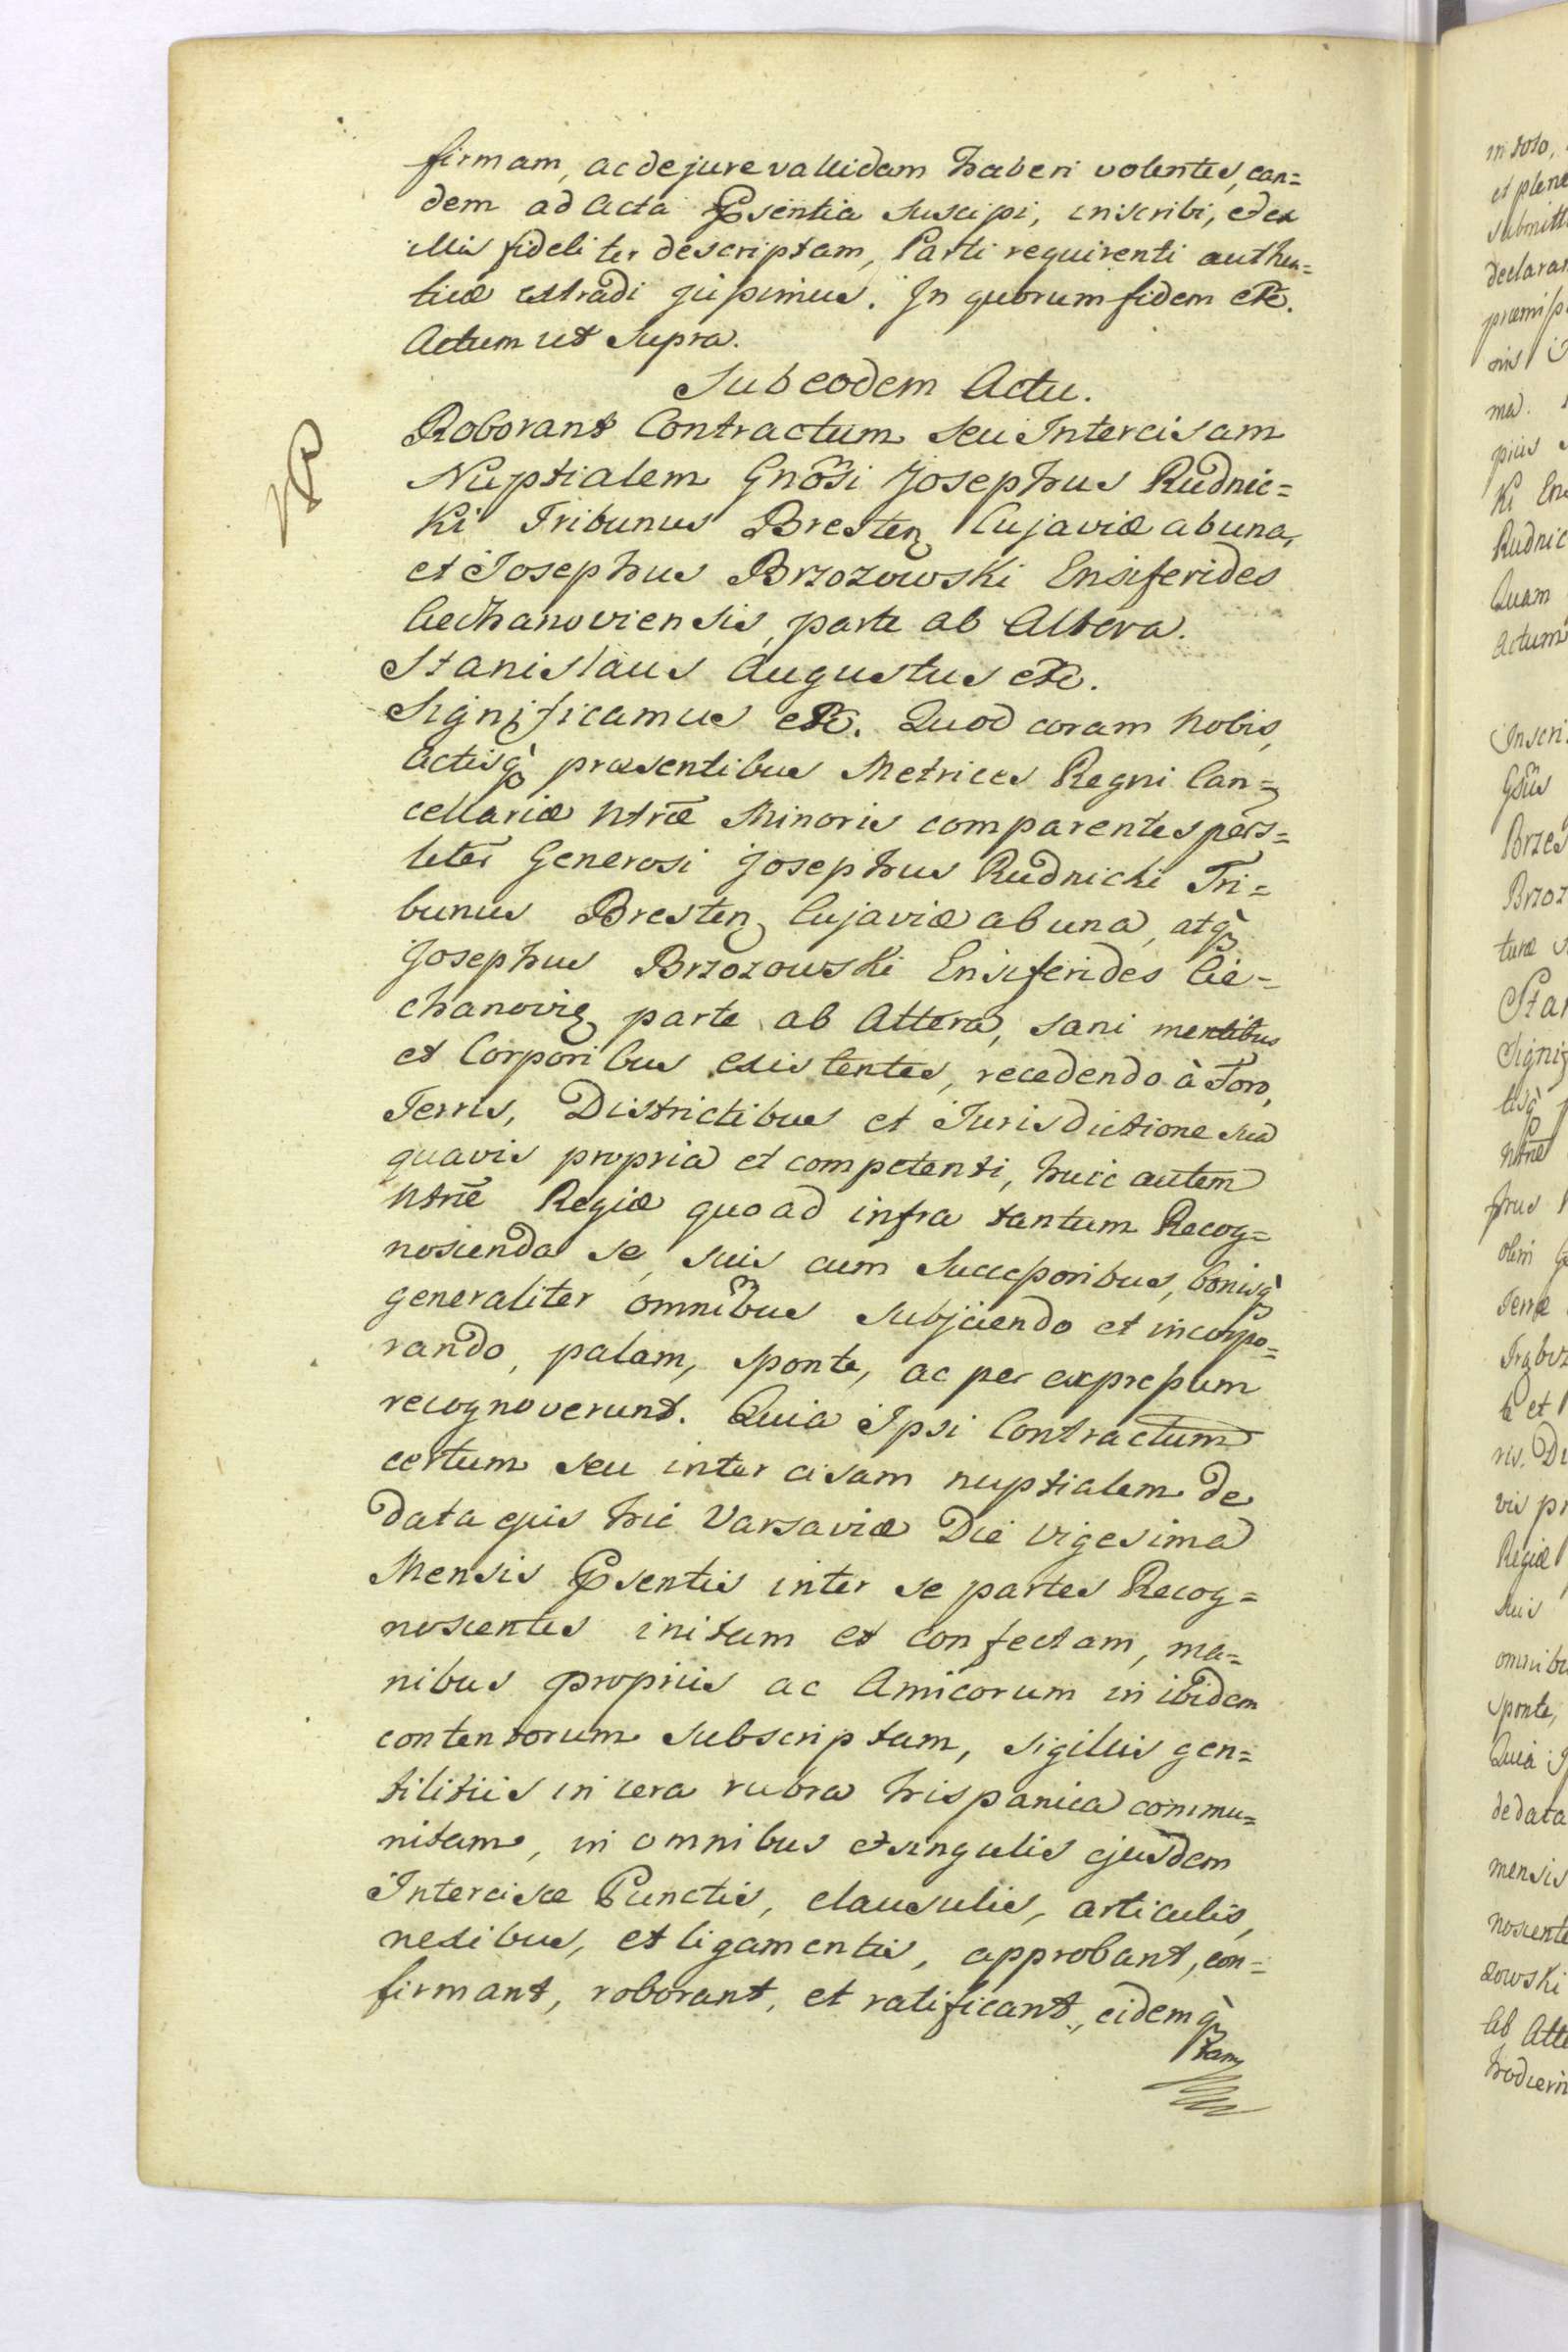 firmam, ac de jure vallidam haberi volentes, ean=
dem ad Acta Psentia suscipi, inscribi, et ex
illis fideliter descriptam, Parti requirenti authen=
ticæ extradi jussimus. In quorum fidem etc.
Actum ut supra.
Sub eodem Actu.
Roborant Contractum seu Intercisam
Nuptialem Gnosi Josephus Rudnic=
ki Tribunus Bresten Cujaviæ ab una,
et Josephus Brzozowski Ensiferides
Ciechanoviensis, parte ab Altera.
Stanislaus Augustus etc.
Significamus etc. Quod coram Nobis,
Actisq præsentibus Metrices Regni Can=
cellariæ Ntræ Minoris comparentes pers=
liter Generosi Josephus Rudnicki Tri=
bunus Bresten Cujaviæ ab una, atq
Josephus Brzozowski Ensiferides Cie=
chanovien parte ab Altera, sani mentibus
et Corporibus existentes, recedendo à Foro,
Terris, Districtibus et Jurisdictione sua
quavis propria et competenti, huic autem
Ntræ Regiæ quoad infra tantum Recog=
noscenda se, suis cum Successoribus, bonisq
generaliter omnibus subjiciendo et incorpo=
rando, palam, sponte, ac per expressum
recognoverunt. Quia Ipsi Contractum
certum seu intercisam nuptialem de
data ejus hic Varsaviæ Die vigesima
Mensis Psentis inter se partes Recog=
noscentes initam et confectam, ma=
nibus propriis ac Amicorum in ibidem
contentorum subscriptam, sigillis gen=
tilitiis in cera rubra hispanica commu=
nitam, in omnibus et singulis ejusdem
Intercisæ Punctis, clausulis, articulis,
nexibus, et ligamentis, approbant, con=
firmant, roborant, et ratificant, eidemq
tam
in toto,
et plene
submitt
declaran
præmiss
onis
ma.
pius
ki Ens
Rudnic
Quam
Actum
Inscri
Gsiis
Brzes
Brzoz
turæ
Stan
Signif
tisq
Ntræ
phus
olim
Terræ
te et
ris, Di
vis pr
Regiæ
suis
omnibu
sponte,
Quia I
de data
mensis
noscente
zowski
ab Alte
hodiern